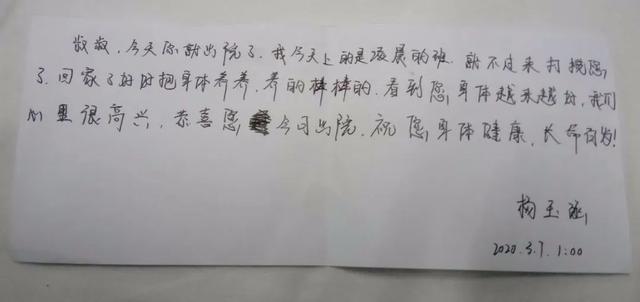 叔叔，今天你就出院了，我今天上的是凌晨的班，就不过来打搅您
了，回家了好好把身体养养，养的棒棒的，看到您身体越来越好，我们
心里很高兴，恭喜您今日出院，祝您身体健康，长命百岁！
杨玉
2020.3.7. 1:00